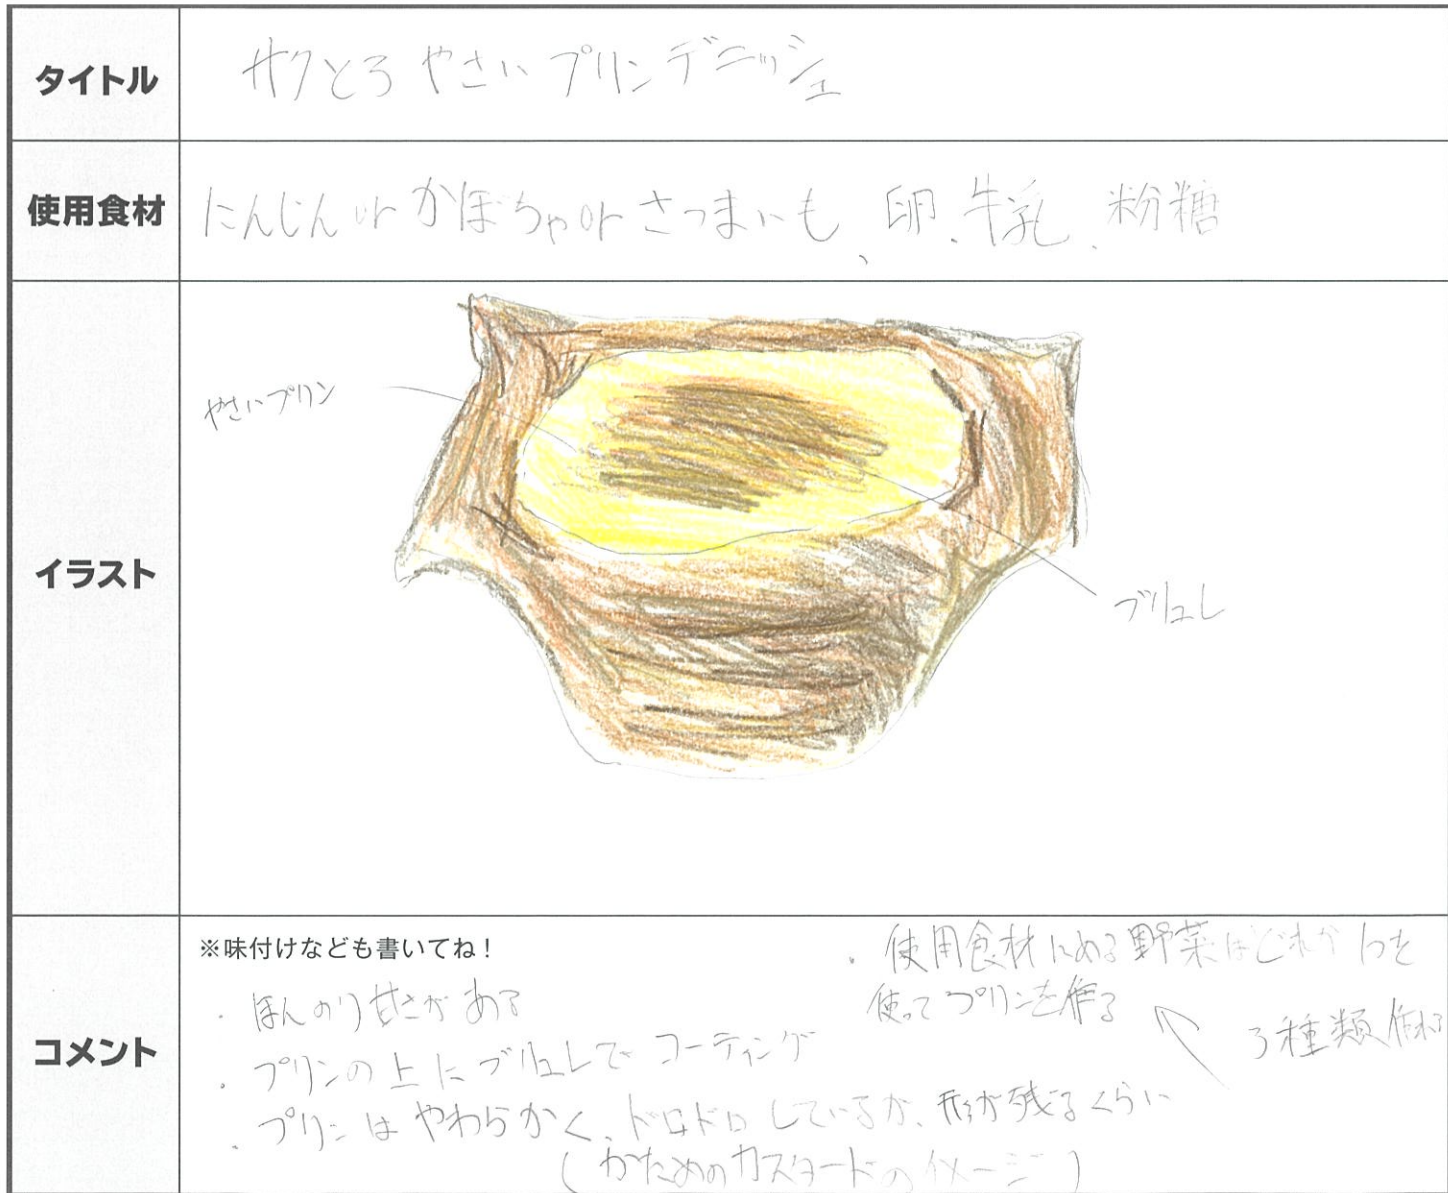 タイトル
サクとろ やさいプリンデニッシュ
使用食材
にんじん or かぼちゃ or さつまいも、卵、牛乳、粉糖
イラスト
やさいプリン
ブリュレ
コメント
※味付けなども書いてね!
・ほんのり甘さがある
・プリンの上にブリュレでコーティング
・プリンはやわらかく、ドロドロしているが、形が残るくらい
(かためのカスタードのイメージ)
・使用食材にある野菜はどれか1つを
使ってプリンを作る
3種類作れる